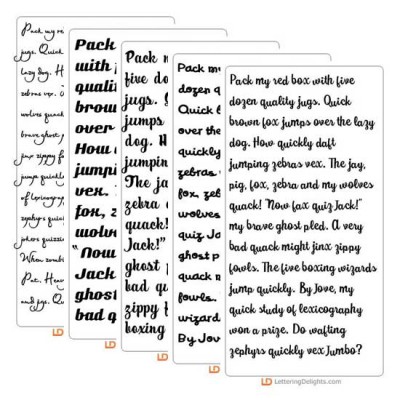 Pack my re
jugs. Quick
lazy dog. H
zebras vex.
wolves quack
brave ghost
jinx zippy f
jump quickly
of lexicograp
zephyrs quic
jokers quizzic
When zomb
Pat. Hear
LD
Pack
with f
qualit
brow
over
How
jumpi
vex.
fox, z
wolv
"Now
Jack
ghost
bad q
LD
Pack m
five do
jugs.
jumps
dog. H
jumping
The ja
zebra
quack!
Jack!"
ghost
bad qu
zippy f
boxing
LD
Pack m
dozen q
Quick b
over the
quickly
zebras
fox, ze
wolves
quiz Ja
ghost
quack
fowls.
wizard
By Jov
LD
Pack my red box with five
dozen quality jugs. Quick
brown fox jumps over the lazy
dog. How quickly daft
jumping zebras vex. The jay,
pig, fox, zebra and my wolves
quack! "Now fax quiz Jack!"
my brave ghost pled. A very
bad quack might jinx zippy
fowls. The five boxing wizards
jump quickly. By Jove, my
quick study of lexicography
won a prize. Do wafting
zephyrs quickly vex Jumbo?
LD LetteringDelights.com